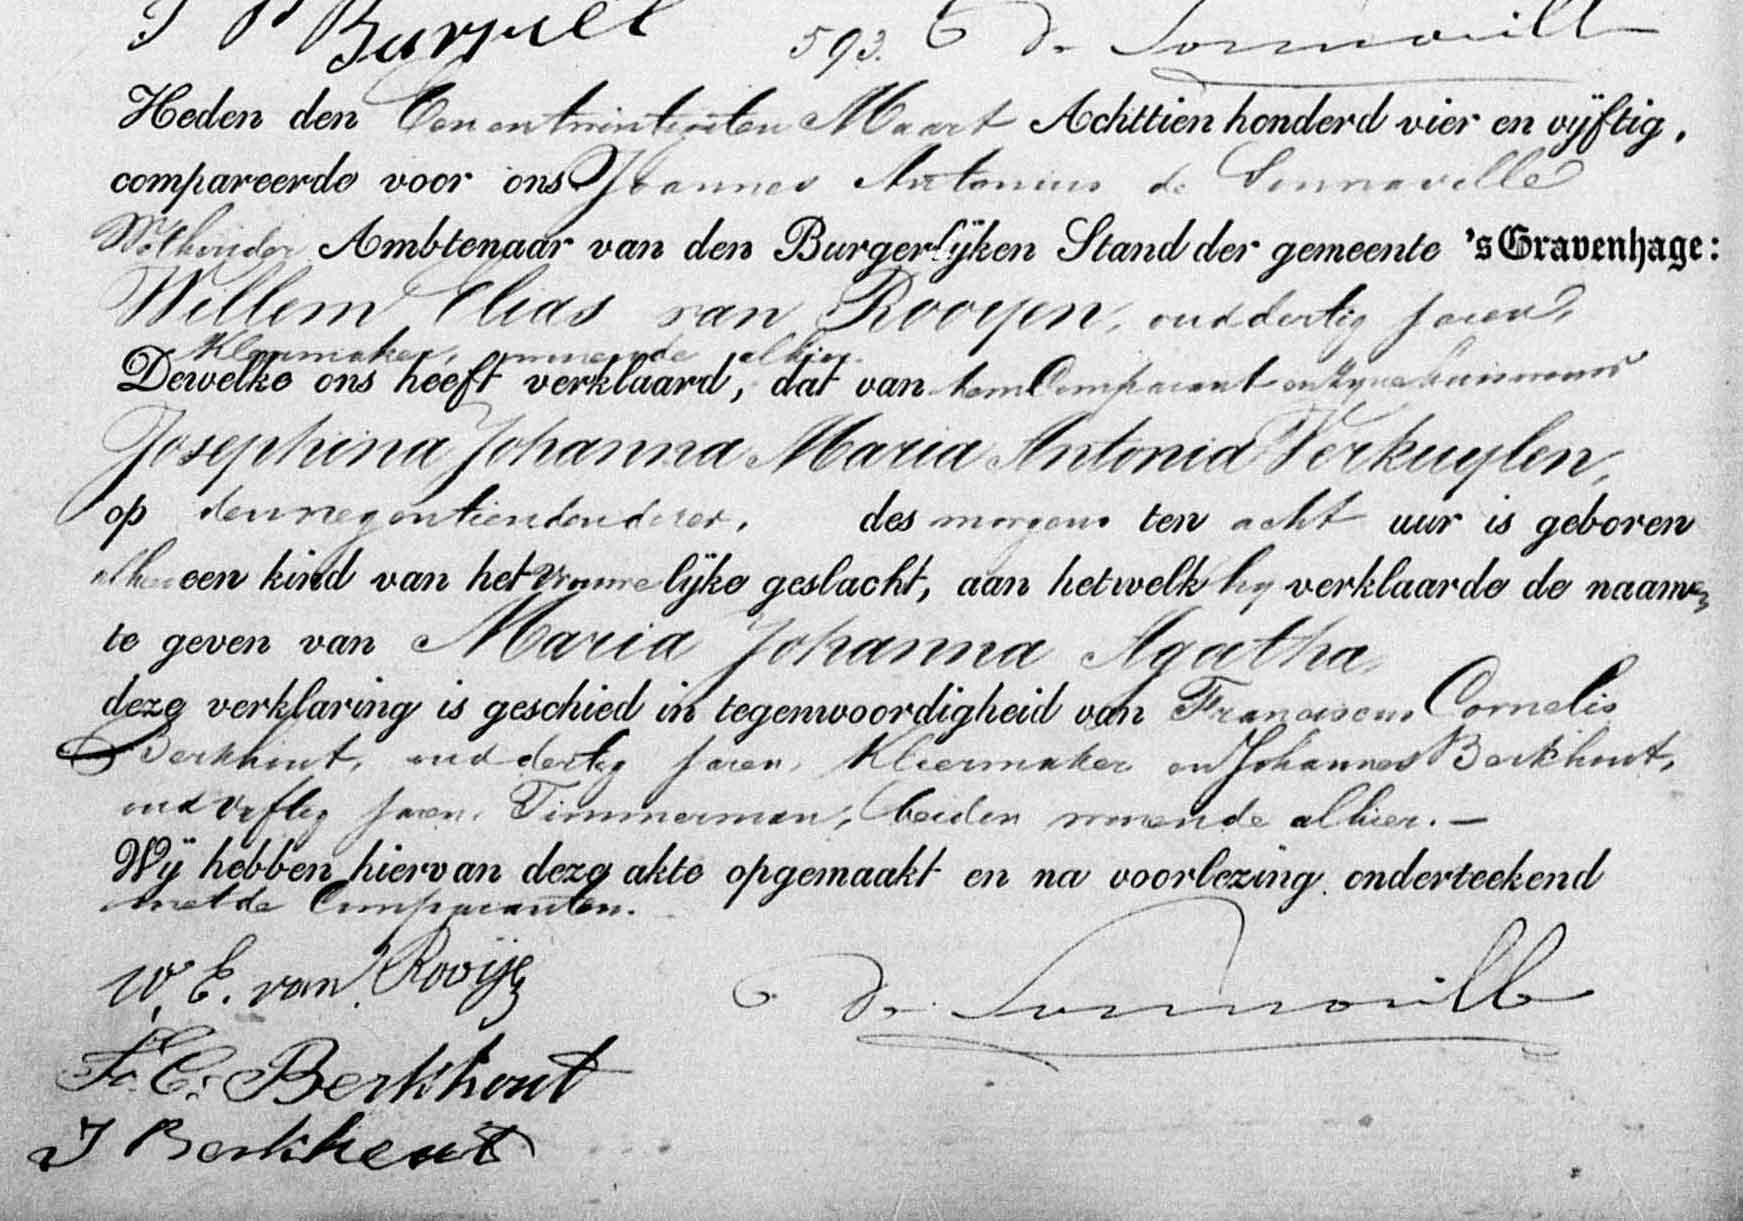 Burgill
593. de Sonnaville
Heden den Een en twintigsten Maart Achttien honderd vier en vijftig,
compareerde voor ons Johannes Antonius de Sonnaville
Wethouder Ambtenaar van den Burgerlijken Stand der gemeente 's Gravenhage:
Willem Elias van Rooyen, oud dertig jaren,
Kleermaker, wonende alhier.
Dewelke ons heeft verklaard, dat van hem Comparant en zyne huisvrouw
Josephina Johanna Maria Antonia Verkuylen,
op den negentienden dezer, des morgens ten acht uur is geboren
alhier een kind van het vrouwelijke geslacht, aan hetwelk hy verklaarde de naamen
te geven van Maria Johanna Agatha,
deze verklaring is geschied in tegenwoordigheid van Franciscus Cornelis
Berkhout, oud dertig jaren, Kleermaker en Johannes Berkhout,
oud vyftig jaren, Timmerman, beiden wonende alhier. —
Wij hebben hiervan deze akte opgemaakt en na voorlezing onderteekend
met de Comparanten.
W. E. van Rooije
de Sonnaville
F. C. Berkhout
J Berkhout